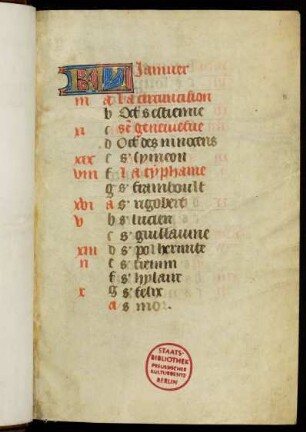 KL Januier
iii a La circuncision
b Oct' s' estienne
xi c s'e geneuiefue
d Oct' des innocens
xix e s' symeon
viii f La typhaine
g s' framboult
xvi a s' rigobert
v b s' lucien
c s' guillaume
xiii d s' pol hermite
ii e s'
f s' hylaire
x g s' felix
a s' mor
STAATS-
BIBLIOTHEK
PREUSSISCHER
KULTURBESITZ
BERLIN